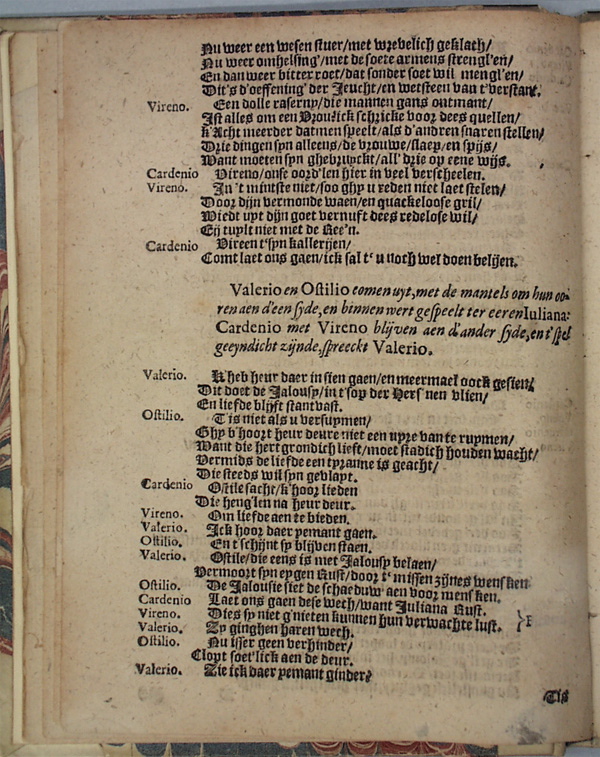 Nu weer een wesen stuer/met wrevelich geklach/
Nu weer omhelsing'/met de soete armens strengl'en/
En dan weer bitter roet/dat sonder soet wil mengl'en/
Dit's d'oeffening' der Jeucht/en wetsteen van t'verstant.
Vireno. Een dolle raserny/die mannen gans ontmant/
Ist alles om een Vrou? ick schricke voor dees quellen/
k'Acht meerder datmen speelt/als d'andren snaren stellen/
Drie dingen syn alleens/de vrouwe/slaep/en spijs/
Want moeten syn ghebruyckt/all' drie op eene wijs.
Cardenio Vireno/onse oord'len hier in veel verscheelen.
Vireno. In 't mintste niet/soo ghy u reden niet laet stelen/
Door dijn vermonde waen/en quackeloose gril/
Wiedt uyt dijn goet vernuft dees redelose wil/
Gij tuylt niet met de Ree'n.
Cardenio Vireen t'syn kallerijen/
Comt laet ons gaen/ick sal t'u noch wel doen belijen.
Valerio en Ostilio comen uyt, met de mantels om hun oo-
ren aen d'een syde, en binnen wert gespeelt ter eeren Iuliana:
Cardenio met Vireno blijven aen d'ander syde, en t'spel
geeyndicht zijnde, spreeckt Valerio.
Valerio. K'heb heur daer in sien gaen/en meermael oock gesien/
Dit doet de Jalousy/in t'sop der Hers'nen vlien/
En liefde blijft stantvast.
Ostilio. T'is niet als u versuymen/
Ghy b'hoort heur deure niet een uyre van te ruymen/
Want die hert grondich lieft/moet stadich houden wacht/
Vermids de liefde een tyranne is geacht/
Die steeds wil syn gevlayt.
Cardenio Ostile sacht/k'hoor lieden
Die heng'len na heur deur.
Vireno. Om liefde aen te bieden.
Valerio. Ick hoor daer yemant gaen.
Ostilio. En t'schijnt sy blijven staen.
Valerio. Ostile/die eens is met Jalousy belaen/
Vermoort syn eygen Rust/door t'missen zijnes wensken
Ostilio. De Jalousie siet de schaeduw' aen voor mensken.
Cardenio Laet ons gaen dese wech/want Juliana Rust.
Vireno. Dies sy niet g'nieten kunnen hun verwachte lust.
Valerio. Zy ginghen haren wech.
Ostilio. Nu isser geen verhinder/
Clopt soet'lick aen de deur.
Valerio. Zie ick daer yemant ginder?
Tis